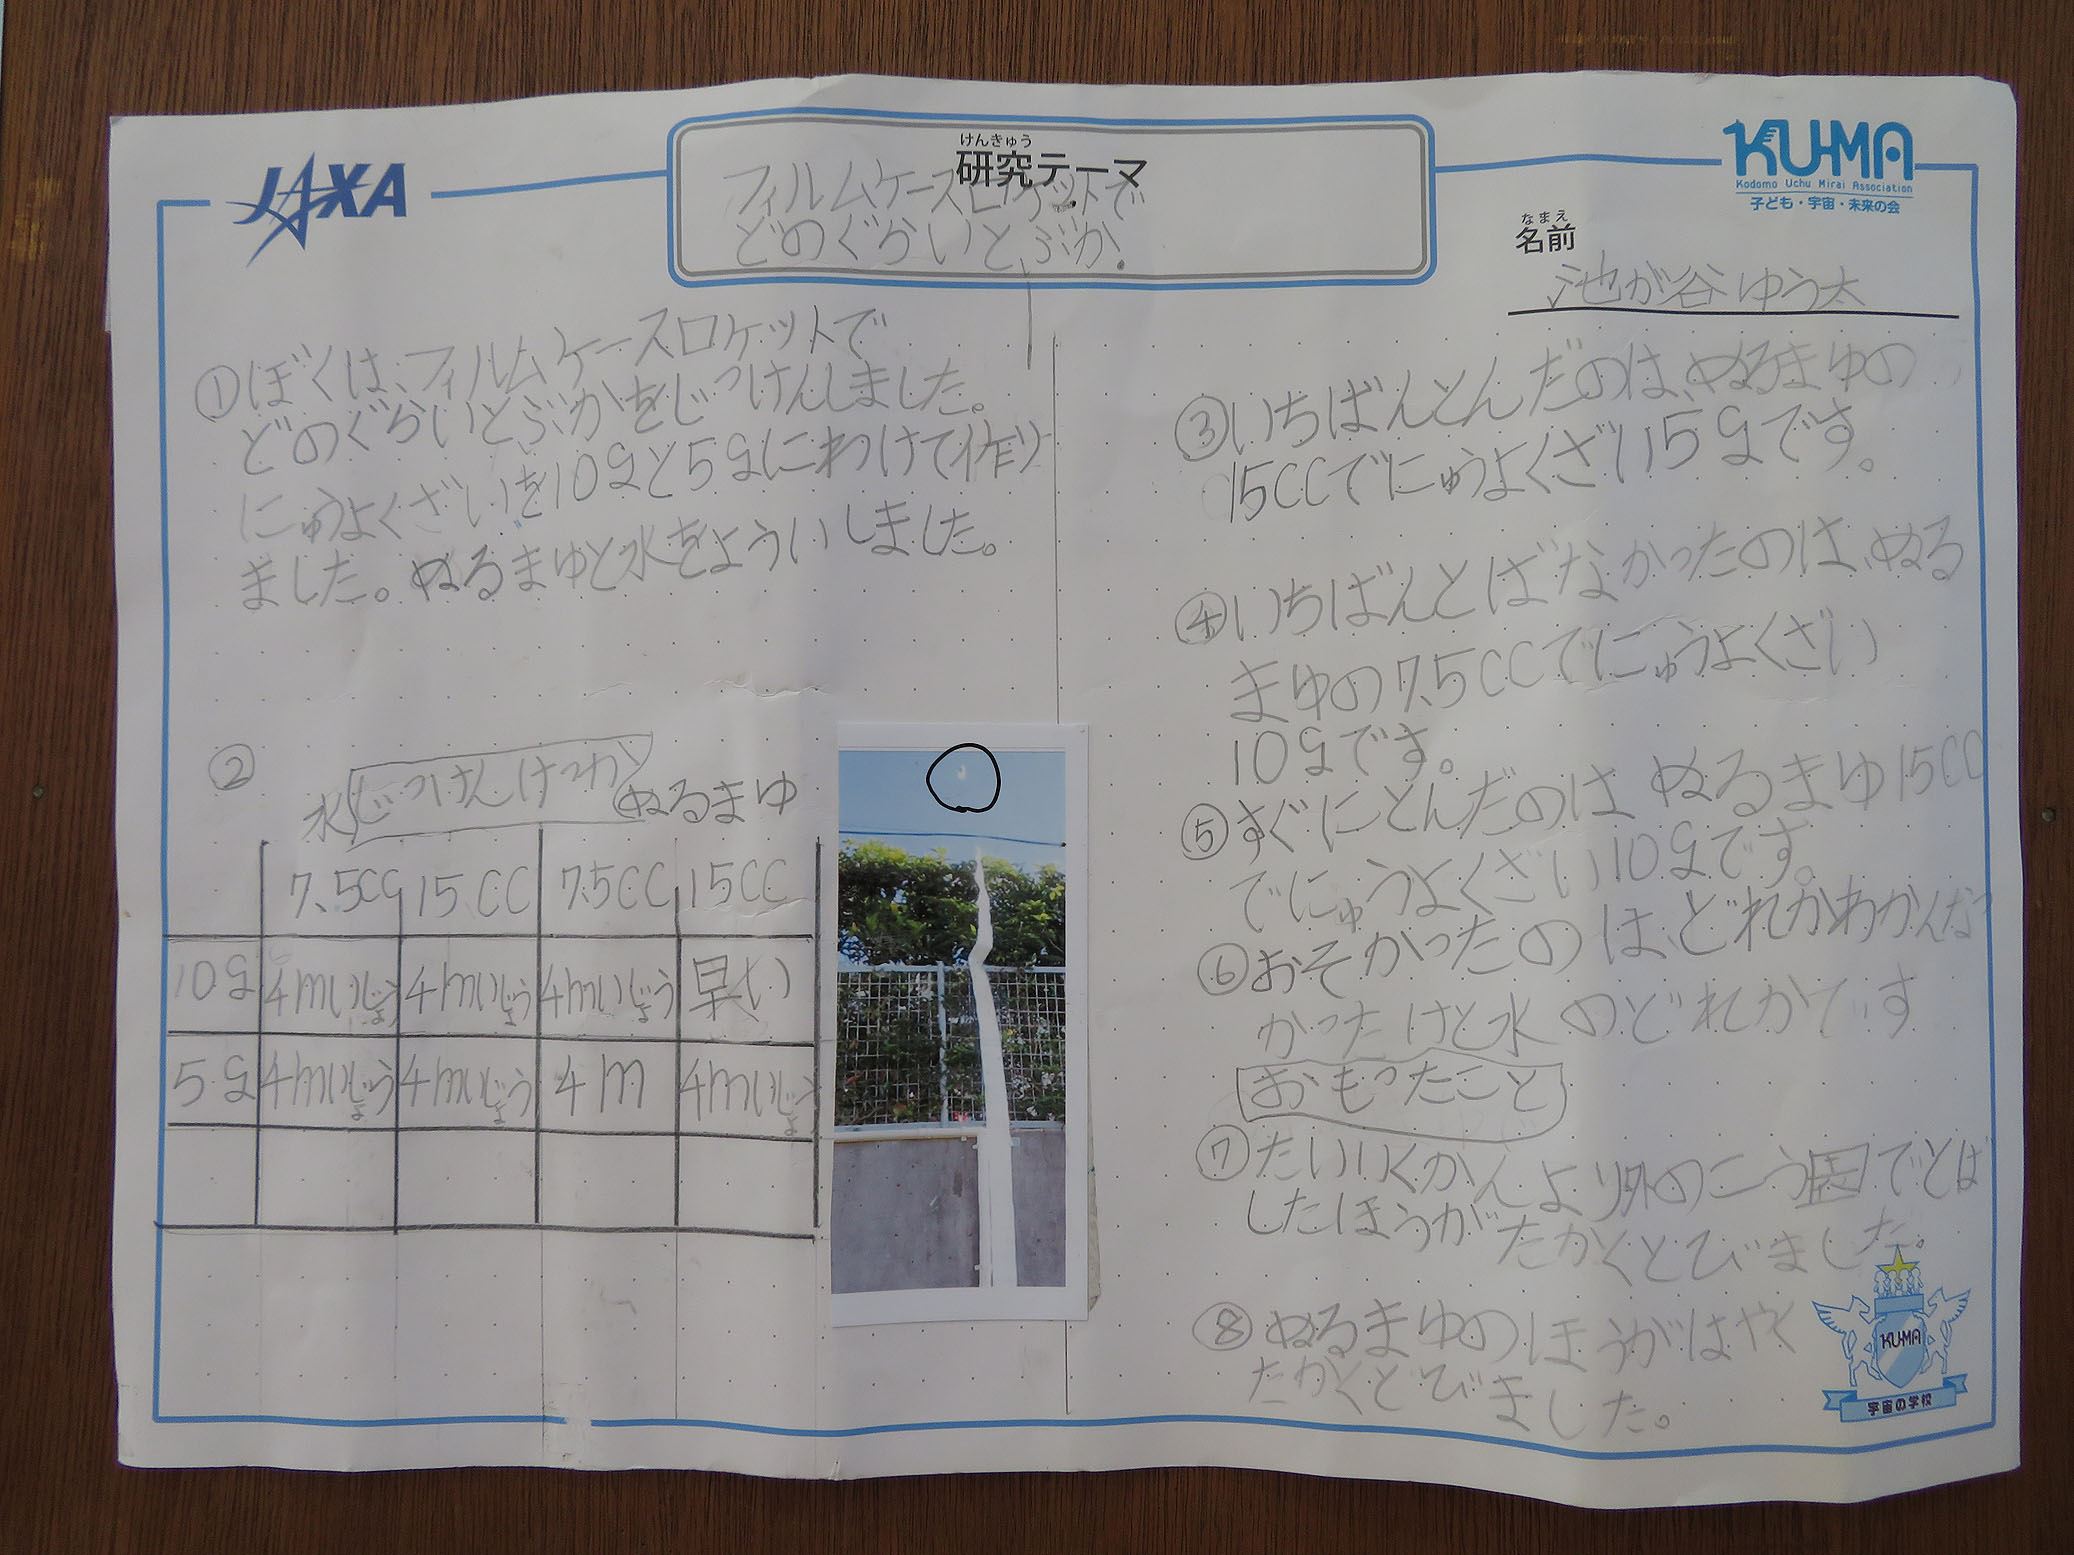 JAXA
けんきゅう
研究テーマ
フィルムケースロケットで
どのぐらいとぶか.
KU-MA
Kodomo Uchu Mirai Association
子ども・宇宙・未来の会
なまえ
名前
池が谷ゆう太
①ぼくは、フィルムケースロケットで
どのぐらいとぶかをじっけんしました。
にゅうよくざいを10gと5gにわけて作り
ました。ぬるまゆと水をよういしました。
②
じっけんけっか
水 ぬるまゆ
7.5CC 15CC 7.5CC 15CC
10g 4mいじょう 4mいじょう 4mいじょう 早い
5g 4mいじょう 4mいじょう 4m 4mいじょう
③いちばんとんだのは、ぬるまゆの
15CCでにゅうよくざい5gです。
④いちばんとばなかったのは、ぬる
まゆの7.5CCでにゅうよくざい
10gです。
⑤すぐにとんだのはぬるまゆ15CC
でにゅうよくざい10gです。
⑥おそかったのは、どれかわかんな
かったけど水のどれかです
おもったこと
⑦たいいくかんより外のこうでとば
したほうがたかくとびました。
⑧ぬるまゆのほうがはやく
たかくとびました。
KU-MA
宇宙の学校